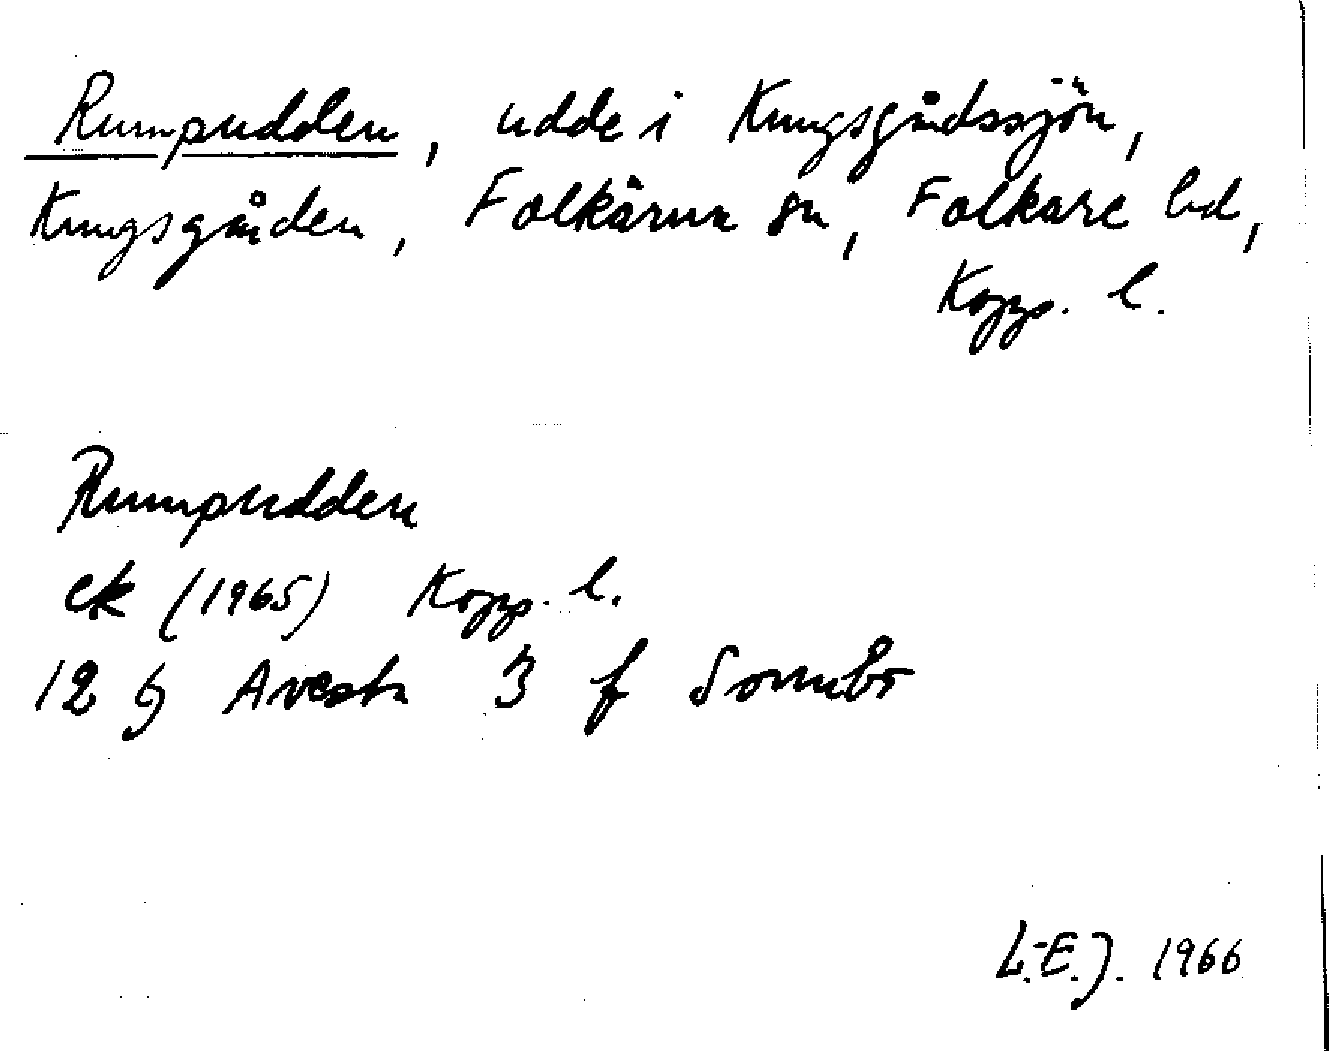 Rumpudden, udde i Kungsgårdssjön,
Kungsgården, Folkärna sn, Folkare hd,
Kopp. l.
Rumpudden
ek (1965) Kopp. l.
12 G Avesta 3 f Sonnbo
L-E.J. 1966